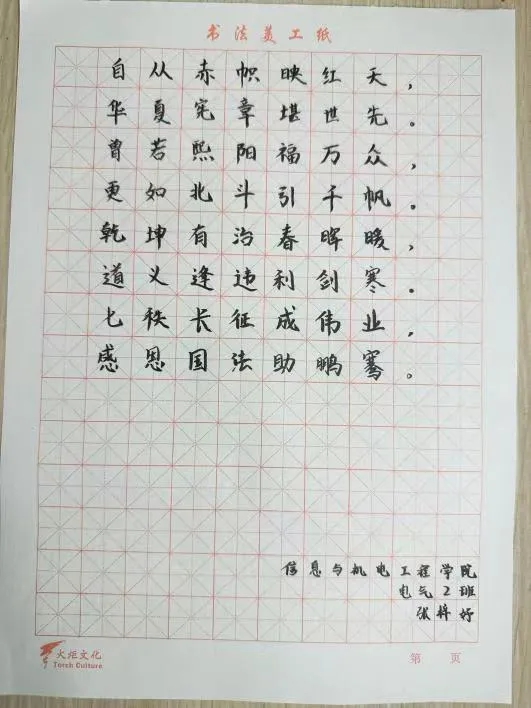 书法美工纸
自从赤帜映红天,
华夏宪章堪世先。
曾若熙阳福万众,
更如北斗引千帆。
乾坤有治春晖暖,
道义逢违利剑寒.
七秩长征成伟业,
感恩国法助鹏骞。
信息与机电工程学院
电气2班
张梓妤
火炬文化
Torch Culture
第 页